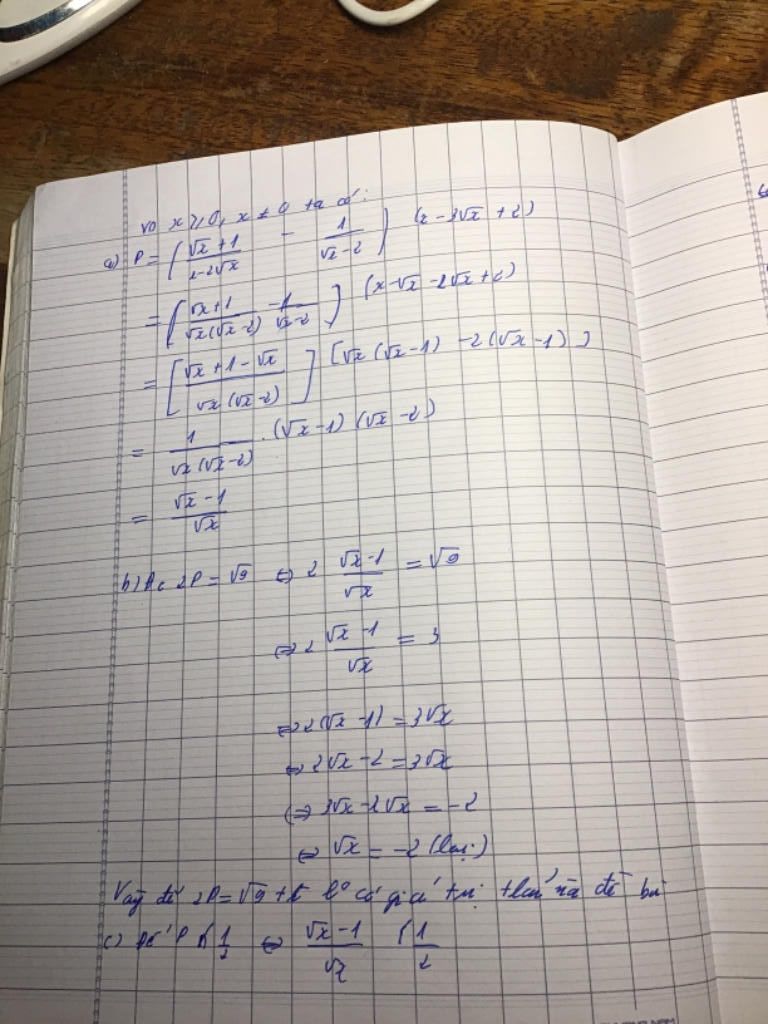 với x ≥ 0, x ≠ 0 ta có:
a) P = ( (√x + 1)/(x - 2√x) - 1/(√x - 2) ) (x - 3√x + 2)
= ( (√x + 1)/(√x(√x - 2)) - 1/(√x - 2) ) (x - √x - 2√x + 2)
= [ (√x + 1 - √x)/(√x(√x - 2)) ] [√x(√x - 1) - 2(√x - 1)]
= 1/(√x(√x - 2)) . (√x - 1)(√x - 2)
= (√x - 1)/√x
b) Để 2P = √9 ⇔ 2 (√x - 1)/√x = √9
⇔ 2 (√x - 1)/√x = 3
⇔ 2(√x - 1) = 3√x
⇔ 2√x - 2 = 3√x
⇔ 3√x - 2√x = -2
⇔ √x = -2 (loại)
Vậy để 2P = √9 có giá trị thoả đề bài
c) Để P < 1/2 ⇔ (√x - 1)/√x < 1/2